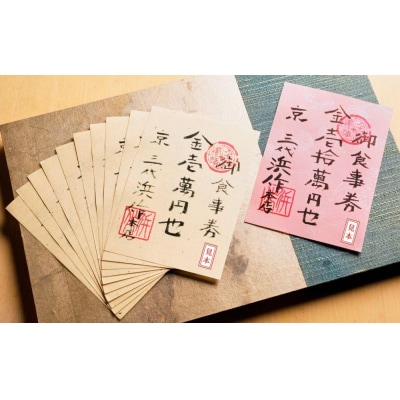 御食事券
金壱萬円也
京 三代浜作本店
見本
御食事券
金壱拾萬円也
京 三代浜作本店
見本